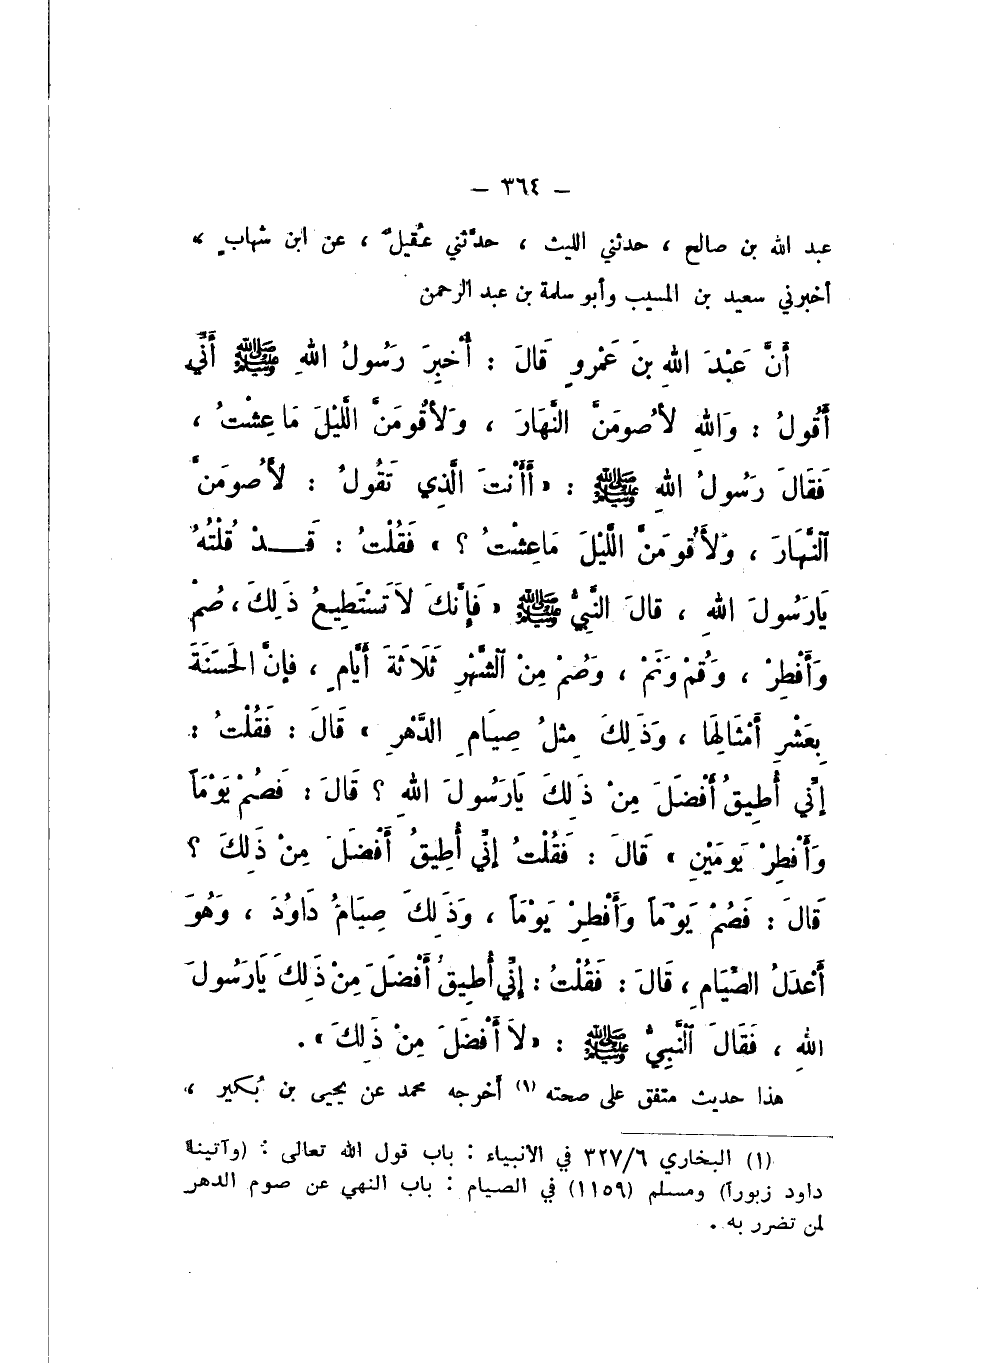 – ٣٦٤ –
عبد الله بن صالح ، حدثني الليث ، حدَّثني عُقيلٌ ، عن ابن شهابٍ ،
أخبرني سعيد بن المسيب وأبو سلمة بن عبد الرحمن
أَنَّ عَبْدَ اللهِ بنَ عَمْروٍ قَالَ : أُخبِرَ رَسُولُ اللهِ ﷺ أَنِّي
أَقُولُ : وَاللهِ لأَصُومَنَّ النَّهَارَ ، وَلأَقُومَنَّ اللَّيْلَ مَا عِشْتُ ،
فَقَالَ رَسُولُ اللهِ ﷺ : « أَأَنْتَ الَّذِي تَقُولُ : لأَصُومَنَّ
النَّهَارَ ، وَلأَقُومَنَّ اللَّيْلَ مَاعِشْتُ ؟ » فَقُلْتُ : قَـــدْ قُلْتُهُ
يَارَسُولَ اللهِ ، قالَ النَّبِيُّ ﷺ « فَإِنَّكَ لاَ تَسْتَطِيعُ ذَلِكَ ، صُمْ
وَأَفْطِرْ ، وَقُمْ وَنَمْ ، وَصُمْ مِنْ الشَّهْرِ ثَلَاثَةَ أَيَّامٍ ، فإنَّ الحَسَنَةَ
بِعَشْرِ أَمْثَالِهَا ، وَذَلِكَ مِثلُ صِيَامِ الدَّهْرِ » قَالَ : فَقُلْتُ :
إنِّي أُطِيقُ أَفْضَلَ مِنْ ذَلِكَ يَارَسُولَ اللهِ ؟ قَالَ : فَصُمْ يَوْمَاً
وَأَفْطِرْ يَومَيْنِ » قَالَ : فَقُلْتُ إنِّي أُطِيقُ أَفْضَلَ مِنْ ذَلِكَ ؟
قَالَ : فَصُمْ يَوْمَاً وَأَفْطِرْ يَوْمَاً ، وَذَلِكَ صِيَامُ دَاوُدَ ، وَهُوَ
أَعْدَلُ الصِّيَامِ ، قَالَ : فَقُلْتُ : إنِّي أُطِيقُ أَفْضَلَ مِنْ ذَلِكَ يَارَسُولَ
اللهِ ، فَقَالَ النَّبِيُّ ﷺ : « لاَ أَفْضَلَ مِنْ ذَلِكَ » .
هذا حديث متفق على صحته (١) أخرجه محمد عن يحيى بن بُكير ،
(١) البخاري ٣٢٧/٦ في الانبياء : باب قول الله تعالى : (وآتينا
داود زبوراً) ومسلم (١١٥٩) في الصيام : باب النهي عن صوم الدهر
لمن تضرر به .